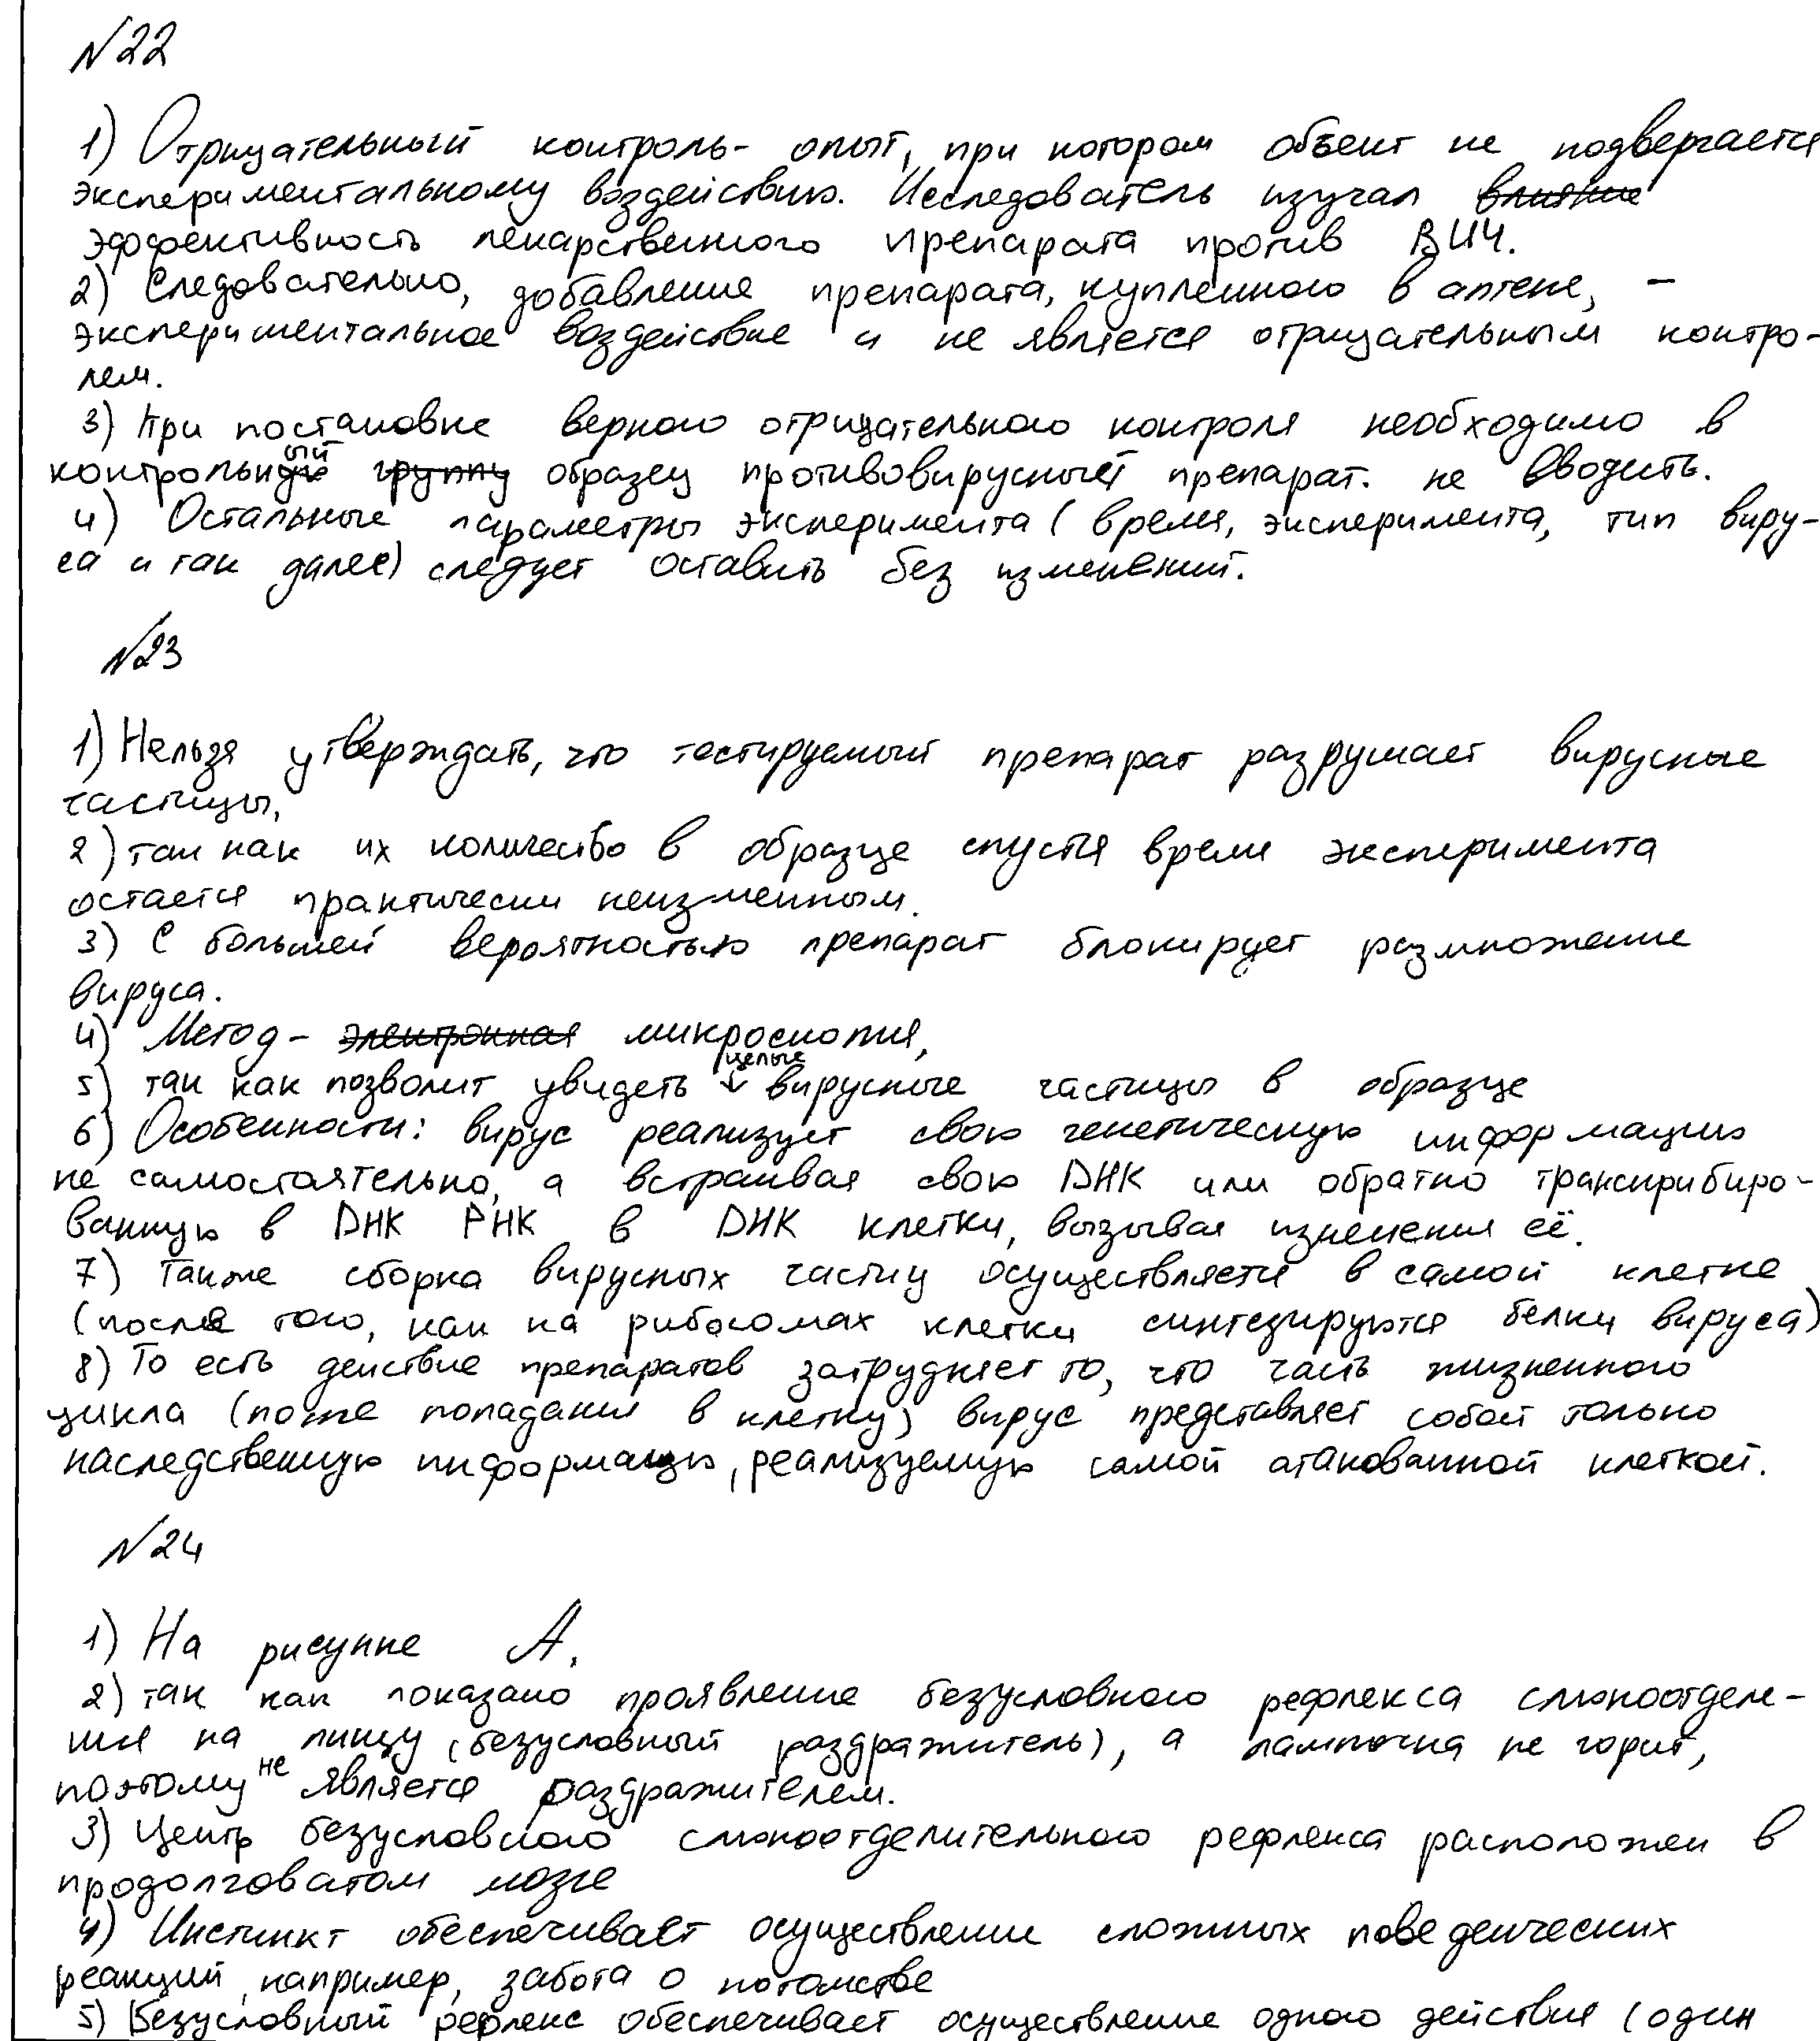 №22
1) Отрицательный контроль- опыт, при котором объект не подвергается
экспериментальному воздействию. Исследователь изучал влияние
эффективность лекарственного препарата против ВИЧ.
2) Следовательно, добавление препарата, купленного в аптеке, -
экспериментальное воздействие и не является отрицательным контро-
лем.
3) При постановке верного отрицательного контроля необходимо в
контрольный группу образец противовирусный препарат. не вводить.
4) Остальные параметры эксперимента (время, эксперимента, тип виру-
са и так далее) следует оставить без изменений.
№23
1) Нельзя утверждать, что тестируемый препарат разрушает вирусные
частицы,
2) так как их количество в образце спустя время эксперимента
остается практически неизменным.
3) С большей вероятностью препарат блокирует размножение
вируса.
4) Метод - электронная микроскопия,
5) так как позволит увидеть целые вирусные частицы в образце
6) Особенности: вирус реализует свою генетическую информацию
не самостоятельно, а встраивая свою ДНК или обратно транскрибиро-
ванную в ДНК РНК в ДНК клетки, вызывая изменения её.
7) Также сборка вирусных частиц осуществляется в самой клетке
(после того, как на рибосомах клетки синтезируются белки вируса)
8) То есть действие препаратов затрудняет то, что часть жизненного
цикла (после попадания в клетку) вирус представляет собой только
наследственную информацию, реализуемую самой атакованной клеткой.
№24
1) На рисунке А,
2) так как показано проявление безусловного рефлекса слюноотделе-
ния на пищу (безусловный раздражитель), а лампочка не горит,
поэтому не является раздражителем.
3) Центр безусловного слюноотделительного рефлекса расположен в
продолговатом мозге
4) Инстинкт обеспечивает осуществление сложных поведенческих
реакций, например, забота о потомстве
5) Безусловный рефлекс обеспечивает осуществление одного действия (один